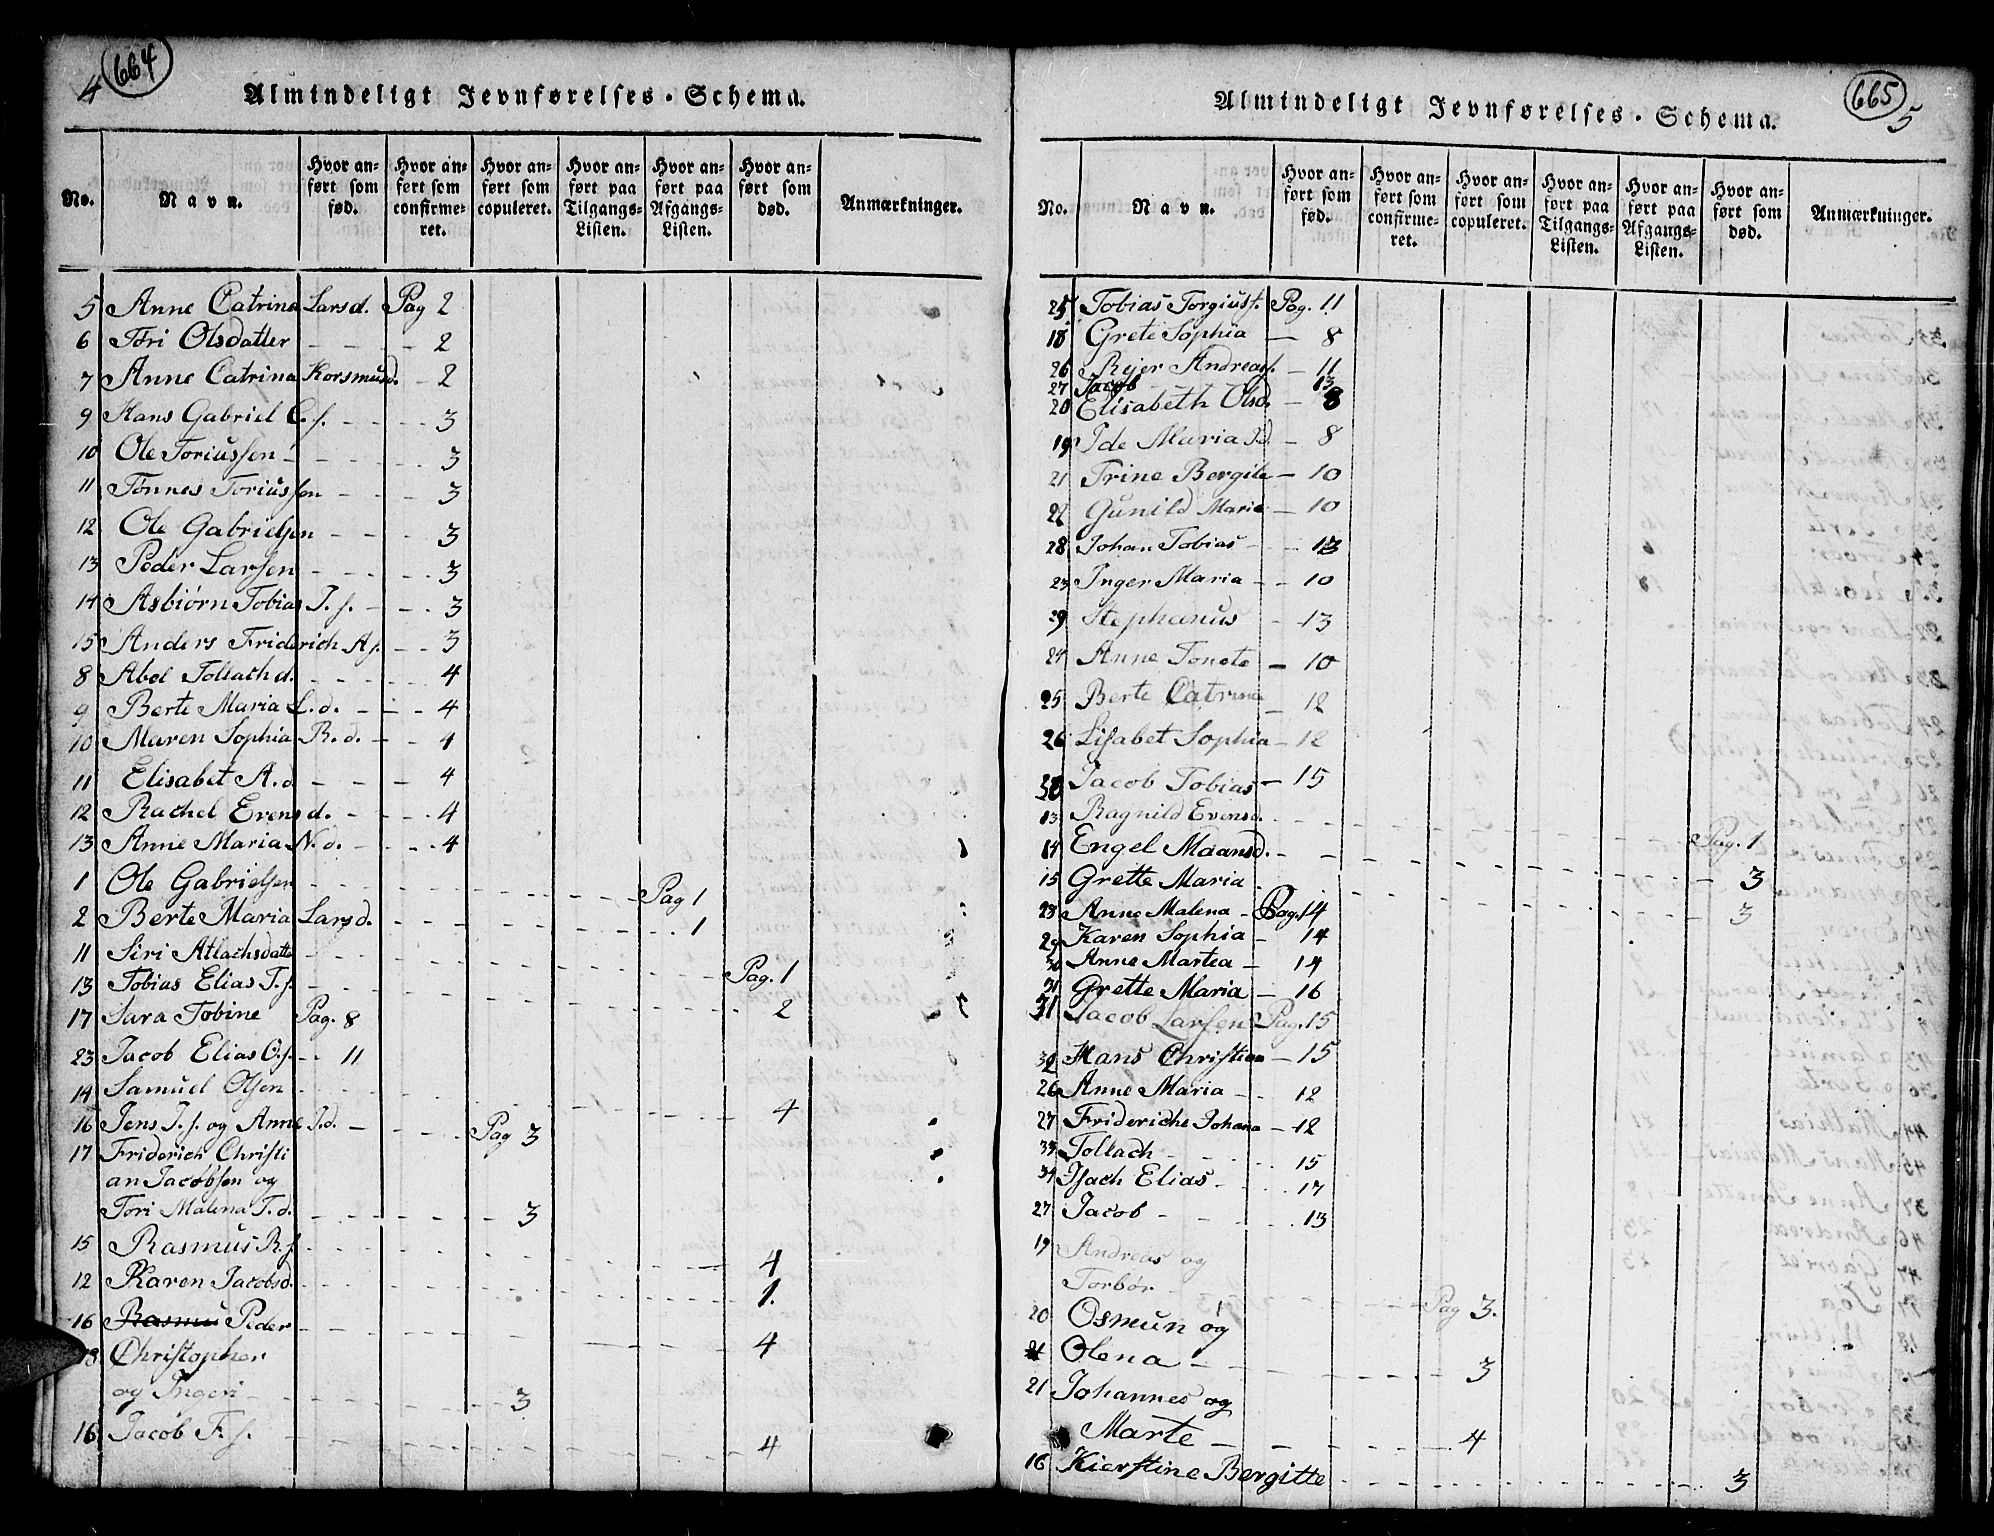 4 664
Almindeligt Jevnførelses-Schema.
No. Navn. Hvor anført som fød. Hvor anført som confirmeret. Hvor anført som copuleret. Hvor anført paa Tilgangs-Listen. Hvor anført paa Afgangs-Listen. Hvor anført som død. Anmærkninger.
5 Anne Catrina Larsd. Pag 2
6 Töri Olsdatter - - - - 2
7 Anne Catrina Korsmusd. - 2
9 Hans Gabriel C. s. - - - - 3
10 Ole Toriussen - - - - 3
11 Tönnes Toriussen - - - 3
12 Ole Gabrielsen - - - 3
13 Peder Larsen - - - - 3
14 Asbiørn Tobias T. s. - - - 3
15 Anders Friderich A s. - - 3
8 Abel Tollach d. - - - - 4
9 Berte Maria L. d. - - - 4
10 Maren Sophia R. d. - - 4
11 Elisabet A. d - - - 4
12 Rachel Evens d. - - - 4
13 Anne Maria N. d. - - - 4
1 Ole Gabrielsen - - - - Pag 1
2 Berte Maria Lars d. - - - 1
11 Siri Atlachsdatte - - - Pag. 1
13 Tobias Elias T. s. - - - 2
17 Sara Tobine Pag. 8
23 Jacob Elias O. s. - - 11
14 Samuel Olsen - - - 4
16 Jens J. s. og Anne J. d. - - - Pag 3
17 Friderich Christi
an Jacobsen og
Tori Malena T. d. - - - 3
15 Rasmus R. s. - - - 4
12 Karen Jacobsd. - - - 1.
16 Rasmus Peder - - - 4
18. Christopher
og Ingeri - - - 3
16 Jacob F. s. - - - 4
665 5
Almindeligt Jevnførelses-Schema.
No. Navn. Hvor anført som fød. Hvor anført som confirmeret. Hvor anført som copuleret. Hvor anført paa Tilgangs-Listen. Hvor anført paa Afgangs-Listen. Hvor anført som død. Anmærkninger.
25 Tobias Torgius s. Pag. 11
18 Grete Sophia - 8
26 Rejer Andreas s. - 11
27 Jacob - 13
20 Elisabeth Olsd. - 8
19 Ide Maria J. d. - 8
21 Trine Bergite - 10
22 Gunild Marie - 10
28 Johan Tobias - - 13
23 Inger Maria - - 10
29 Stephanus - 13
24 Anne Tonete - 10
25 Berte Catrine - 12
26 Lisabet Sophia - 12
30 Jacob Tobias - 15
13 Ragnild Evensd. - - - Pag. 1
14 Engel Maansd. - - - 3
15 Grette Maria - - - 3
28 Anne Malena - Pag. 14
29 Karen Sophia - 14
30 Anne Martea - 14
31 Grette Maria - 16
31 Jacob Larsen Pag. 15
32 Hans Christian - 15
26 Anne Maria - - 12
27 Frideriche Johana - 12
33 Tollach - - - 15
34 Isach Elias - - - 17
27 Jacob - - - 13
19 Andreas og
Torbör - - - Pag 3.
20 Osmun og
21 Olena - - - 3
21 Johannes og
Marte - - - 4
16 Kierstine Bergitte - - - 3